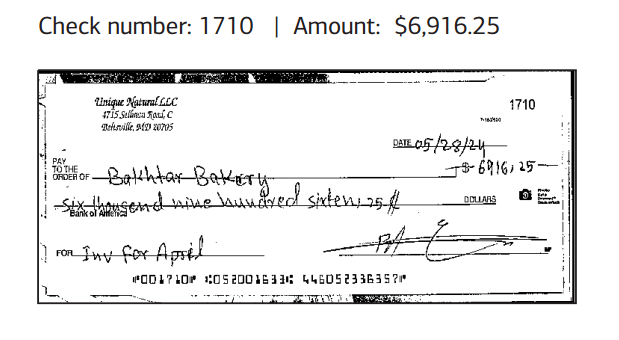 Check number: 1710 | Amount: $6,916.25
Unique Natural LLC
4715 Sellman Road, C
Beltsville, MD 20705
1710
DATE 05/28/24
PAY TO THE ORDER OF Bakhtar Bakery $ 6916,25
six thousend nine hundred sixten, 25 DOLLARS
Bank of America
FOR Inv for April